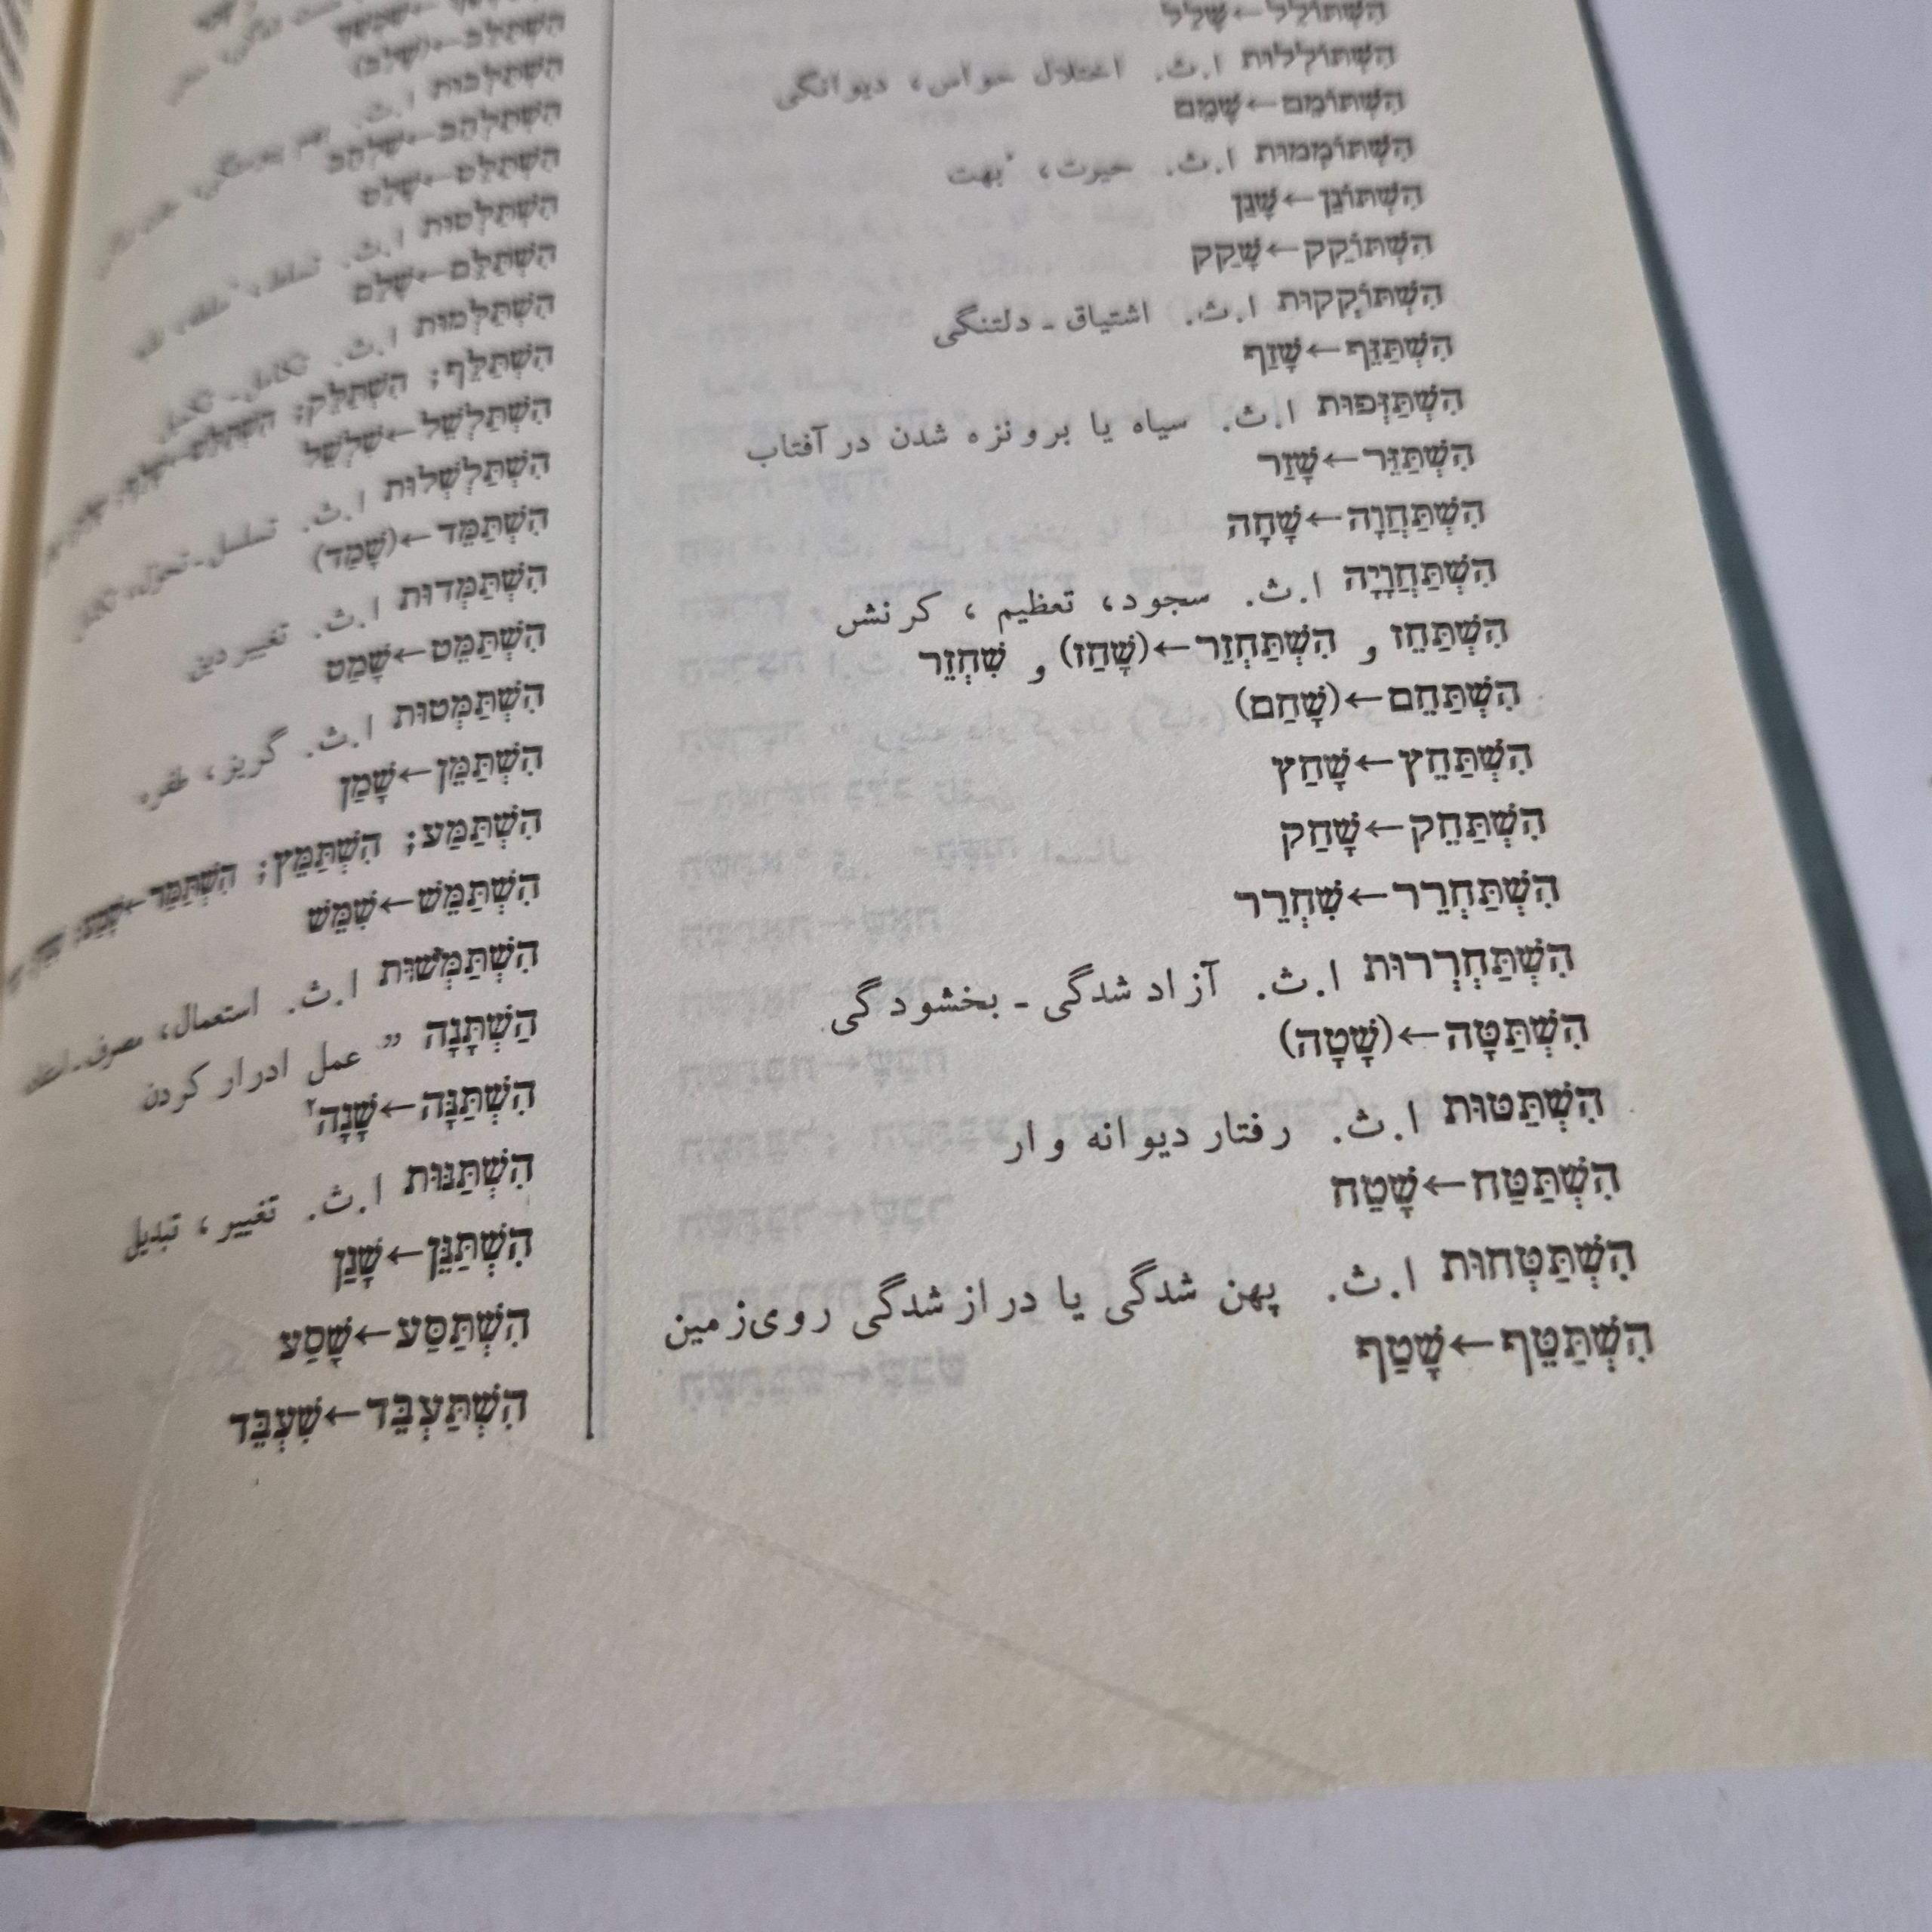 הִשְׁתּוֹלֵל←שָׁלַל
הִשְׁתּוֹלְלוּת ا.ث. اختلال حواس، دیوانگی
הִשְׁתּוֹמֵם←שָׁמֵם
הִשְׁתּוֹמְמוּת ا.ث. حیرت، بُهت
הִשְׁתּוֹנֵן←שָׁנַן
הִשְׁתּוֹקֵק←שָׁקַק
הִשְׁתּוֹקְקוּת ا.ث. اشتیاق ـ دلتنگی
הִשְׁתַּזֵּף←שָׁזַף
הִשְׁתַּזְּפוּת ا.ث. سیاه یا برونزه شدن در آفتاب
הִשְׁתַּזֵּר←שָׁזַר
הִשְׁתַּחֲוָה←שָׁחָה
הִשְׁתַּחֲוָיָה ا.ث. سجود، تعظیم ، کرنش
הִשְׁתַּחֵז و הִשְׁתַּחְזֵר←(שָׁחַז) و שִׁחְזֵר
הִשְׁתַּחֵם←(שָׁחַם)
הִשְׁתַּחֵץ←שָׁחַץ
הִשְׁתַּחֵק←שָׁחַק
הִשְׁתַּחְרֵר←שִׁחְרֵר
הִשְׁתַּחְרְרוּת ا.ث. آزاد شدگی ـ بخشودگی
הִשְׁתַּטָּה←(שָׁטָה)
הִשְׁתַּטּוּת ا.ث. رفتار دیوانه وار
הִשְׁתַּטַּח←שָׁטַח
הִשְׁתַּטְּחוּת ا.ث. پهن شدگی یا دراز شدگی روی‌زمین
הִשְׁתַּטֵּף←שָׁטַף
הִשְׁתַּלֵּב←(שָׁלַב)
הִשְׁתַּלְּבוּת ا.ث.
הִשְׁתַּלְהֵב←שִׁלְהֵב
הִשְׁתַּלֵּט←שָׁלַט
הִשְׁתַּלְּטוּת ا.ث. تسلط،
הִשְׁתַּלֵּם←שָׁלַם
הִשְׁתַּלְּמוּת ا.ث. تکامل ـ تکمیل
הִשְׁתַּלֵּף; הִשְׁתַּלֵּק;
הִשְׁתַּלְשֵׁל←שִׁלְשֵׁל
הִשְׁתַּלְשְׁלוּת ا.ث. تسلسل ـ تحول،
הִשְׁתַּמֵּד←(שָׁמַד)
הִשְׁתַּמְּדוּת ا.ث. تغییر دین
הִשְׁתַּמֵּט←שָׁמַט
הִשְׁתַּמְּטוּת ا.ث. گریز، طفره
הִשְׁתַּמֵּן←שָׁמַן
הִשְׁתַּמַּע; הִשְׁתַּמֵּץ; הִשְׁתַּמֵּר←שָׁמַע;
הִשְׁתַּמֵּשׁ←שִׁמֵּשׁ
הִשְׁתַּמְּשׁוּת ا.ث. استعمال، مصرف ـ
הַשְׁתָּנָה ” عمل ادرار کردن
הִשְׁתַּנָּה←שָׁנָה۲
הִשְׁתַּנּוּת ا.ث. تغییر، تبدیل
הִשְׁתַּנֵּן←שָׁנַן
הִשְׁתַּסַּע←שָׁסַע
הִשְׁתַּעְבֵּד←שִׁעְבֵּד